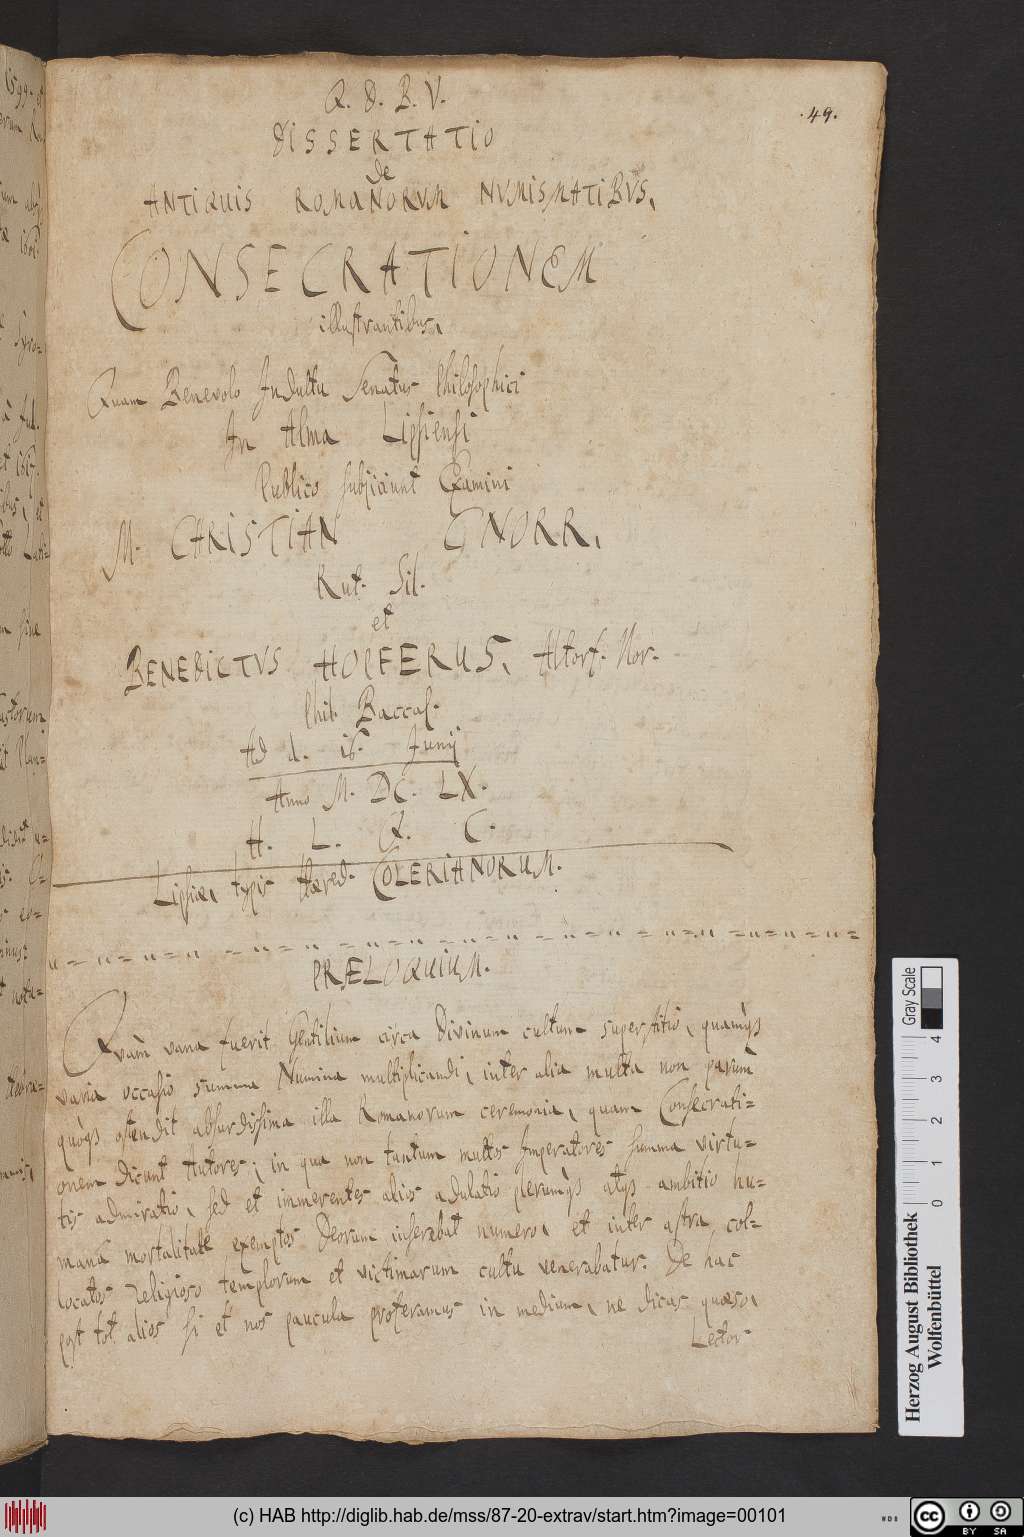 Q. D. B. V.
.49.
DISSERTATIO
De
ANTIQUIS ROMANORUM NUMISMATIBUS,
CONSECRATIONEM
illustrantibus,
Quam Benevolo Indultu Senatus Philosophici
In Alma Lipsiensi
Publico subjiciunt Examini
M. CHRISTIAN CNORR,
Rut. Sil.
et
BENEDICTVS HOPFERUS, Altorf. Nor.
Phil. Baccal.
Ad d. 16. Junij
Anno M. DC. LX.
H. L. Q. C.
Lipsiæ, typis Hæred. COLERIANORUM.
PRÆLOQUIUM.
Qvàm vana fuerit Gentilium circa Divinum cultum superstitio, quamqs
varia occasio summa Numina multiplicandi, inter alia multa non parùm
quoqs ostendit absurdissima illa Romanorum ceremonia, quam Consecrati=
onem dicunt Autores; in qua non tantum multos Imperatores summa virtu=
tis admiratio, sed et immerentes alios adulatio plerumqs atqs ambitio hu=
mana mortalitate exemptos Deorum inserebat numero, et inter astra col=
locatos religioso templorum et victimarum cultu venerabatur. De hac
post tot alios si et nos paucula proferamus in medium, ne dicas quæso,
Lector
Gray Scale
0 1 2 3 4
Herzog August Bibliothek
Wolfenbüttel
(c) HAB http://diglib.hab.de/mss/87-20-extrav/start.htm?image=00101
cc BY SA